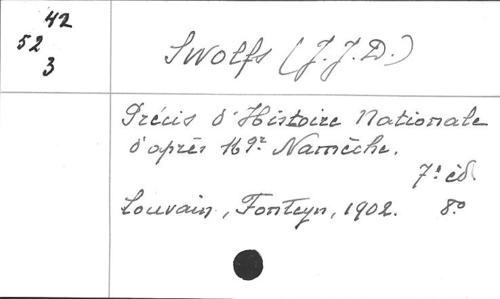 42
52
3
Swolfs (J. J. D.)
Précis d'Histoire Nationale
d'après Mgr. Namèche.
7e éd.
Louvain, Fonteyn, 1902. 8o